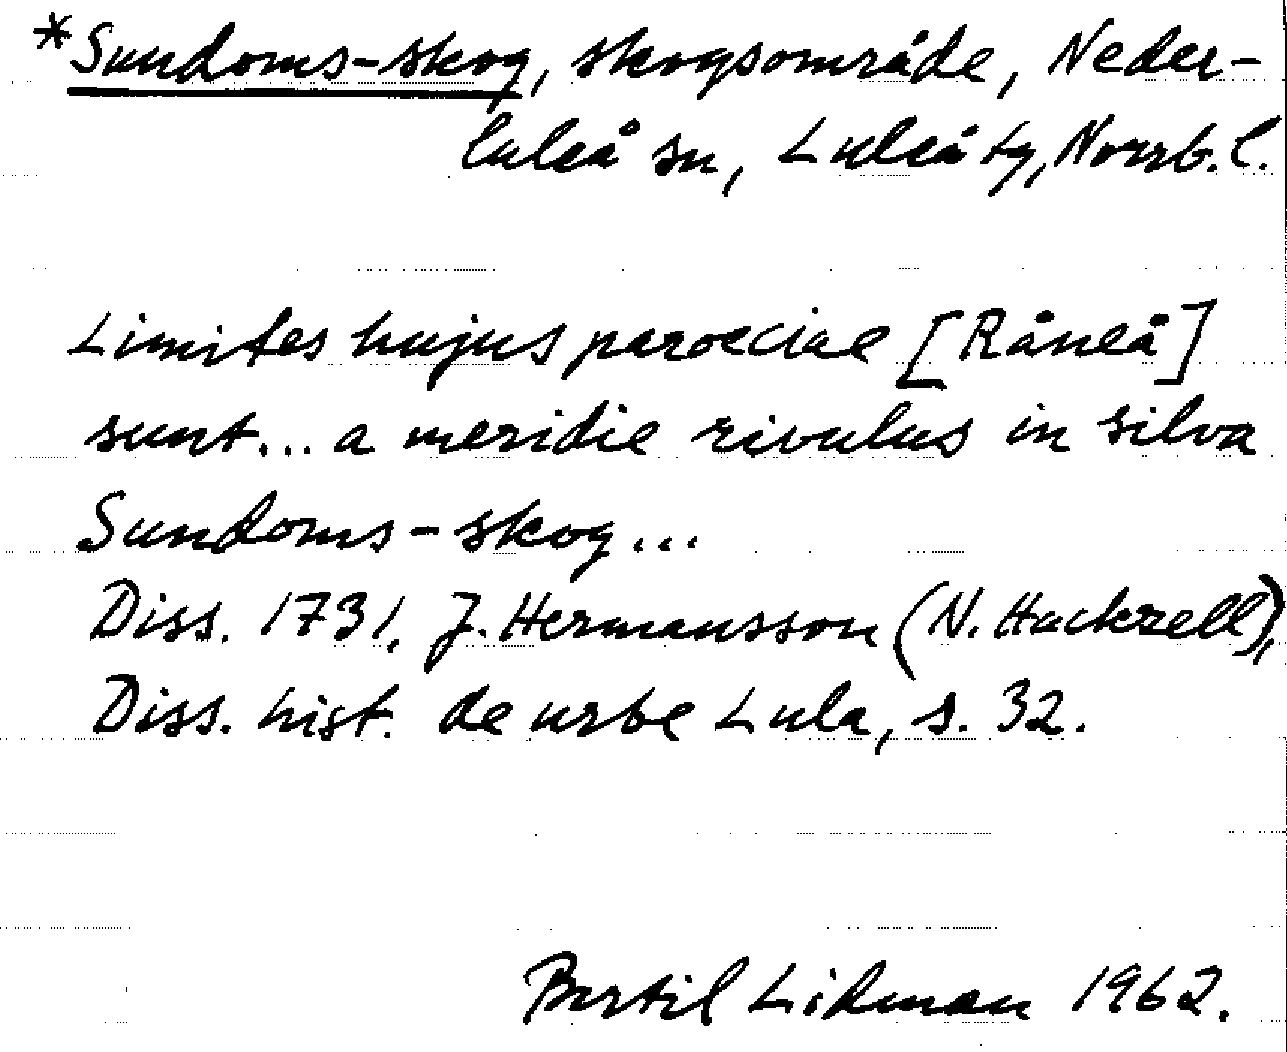 *Sundoms-skog, skogsområde, Neder-
luleå sn, Luleå tg, Norrb. l.
Limites hujus paroeciae [Råneå]
sunt... a meridie rivulus in silva
Sundoms-skog...
Diss. 1731, J. Hermansson (N. Hackzell),
Diss. hist. de urbe Lula, s. 32.
Bertil Lidman 1962.